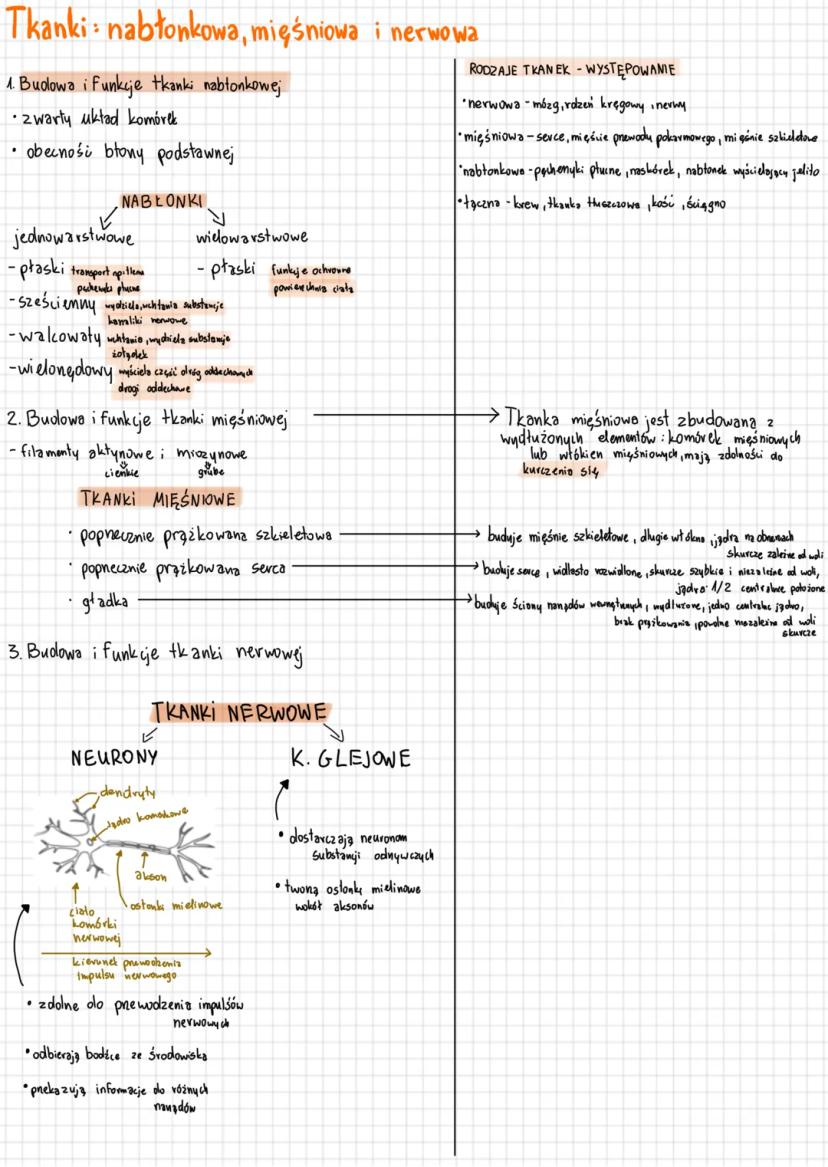 Tkanki: nabłonkowa, mięśniowa i nerwowa
1. Budowa i funkcje tkanki nabłonkowej
• zwarty układ komórek
• obecność błony podstawnej
NABŁONKI
jednowarstwowe
- płaski transport np. tlenu
pęcherzyki płucne
- sześcienny wydziela, wchłania substancje
kanaliki nerwowe
- walcowaty wchłania, wydziela substancje
żołądek
- wielorzędowy wyściela część dróg oddechowych
drogi oddechowe
wielowarstwowe
- płaski funkcje ochronne
powierzchnia ciała
2. Budowa i funkcje tkanki mięśniowej
- filamenty aktynowe i miozynowe
cienkie grube
TKANKI MIĘŚNIOWE
• poprzecznie prążkowana szkieletowa
• poprzecznie prążkowana serca
• gładka
3. Budowa i funkcje tkanki nerwowej
TKANKI NERWOWE
NEURONY
dendryty
jądro komórkowe
akson
osłonki mielinowe
ciało
komórki
nerwowej
kierunek przewodzenia
impulsu nerwowego
• zdolne do przewodzenia impulsów
nerwowych
• odbierają bodźce ze środowiska
• przekazują informacje do różnych
narządów
K. GLEJOWE
• dostarczają neuronom
substancji odżywczych
• tworzą osłonkę mielinowe
wokół aksonów
RODZAJE TKANEK - WYSTĘPOWANIE
• nerwowa - mózg, rdzeń kręgowy, nerwy
• mięśniowa - serce, mięśnie przewodu pokarmowego, mięśnie szkieletowe
• nabłonkowa - pęcherzyki płucne, naskórek, nabłonek wyścielający jelito
• łączna - krew, tkanka tłuszczowa, kość, ścięgno
Tkanka mięśniowa jest zbudowana z
wydłużonych elementów: komórek mięśniowych
lub włókien mięśniowych, mają zdolności do
kurczenia się
buduje mięśnie szkieletowe, długie włókna, jądra na obrzeżach
skurcze zależne od woli
buduje serce, widlasto rozwidlone, skurcze szybkie i niezależne od woli,
jądra 1/2 centralnie położone
buduje ściany narządów wewnętrznych, wydłużone, jedno centralne jądro,
brak prążkowania, powolne niezależne od woli
skurcze